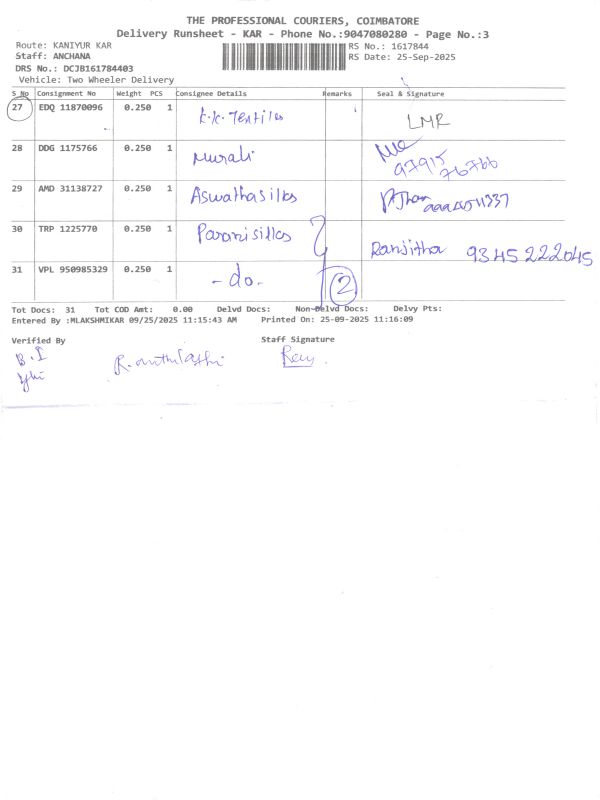 THE PROFESSIONAL COURIERS, COIMBATORE
Delivery Runsheet - KAR - Phone No.:9047080280 - Page No.:3
Route: KANIYUR KAR RS No.: 1617844
Staff: ANCHANA RS Date: 25-Sep-2025
DRS No.: DCJB161784403
Vehicle: Two Wheeler Delivery
S_No Consignment No Weight PCS Consignee Details Remarks Seal & Signature
27 EDQ 11870096 0.250 1 K.K. Tentiles LMR
28 DDG 1175766 0.250 1 Murali
97915
76766
29 AMD 31138727 0.250 1 Aswathasilks
30 TRP 1225770 0.250 1 Paranisilks Ranjitha 9345222045
31 VPL 950985329 0.250 1 - do - 2
Tot Docs: 31 Tot COD Amt: 0.00 Delvd Docs: Non-Delvd Docs: Delvy Pts:
Entered By :MLAKSHMIKAR 09/25/2025 11:15:43 AM Printed On: 25-09-2025 11:16:09
Verified By Staff Signature
B.I